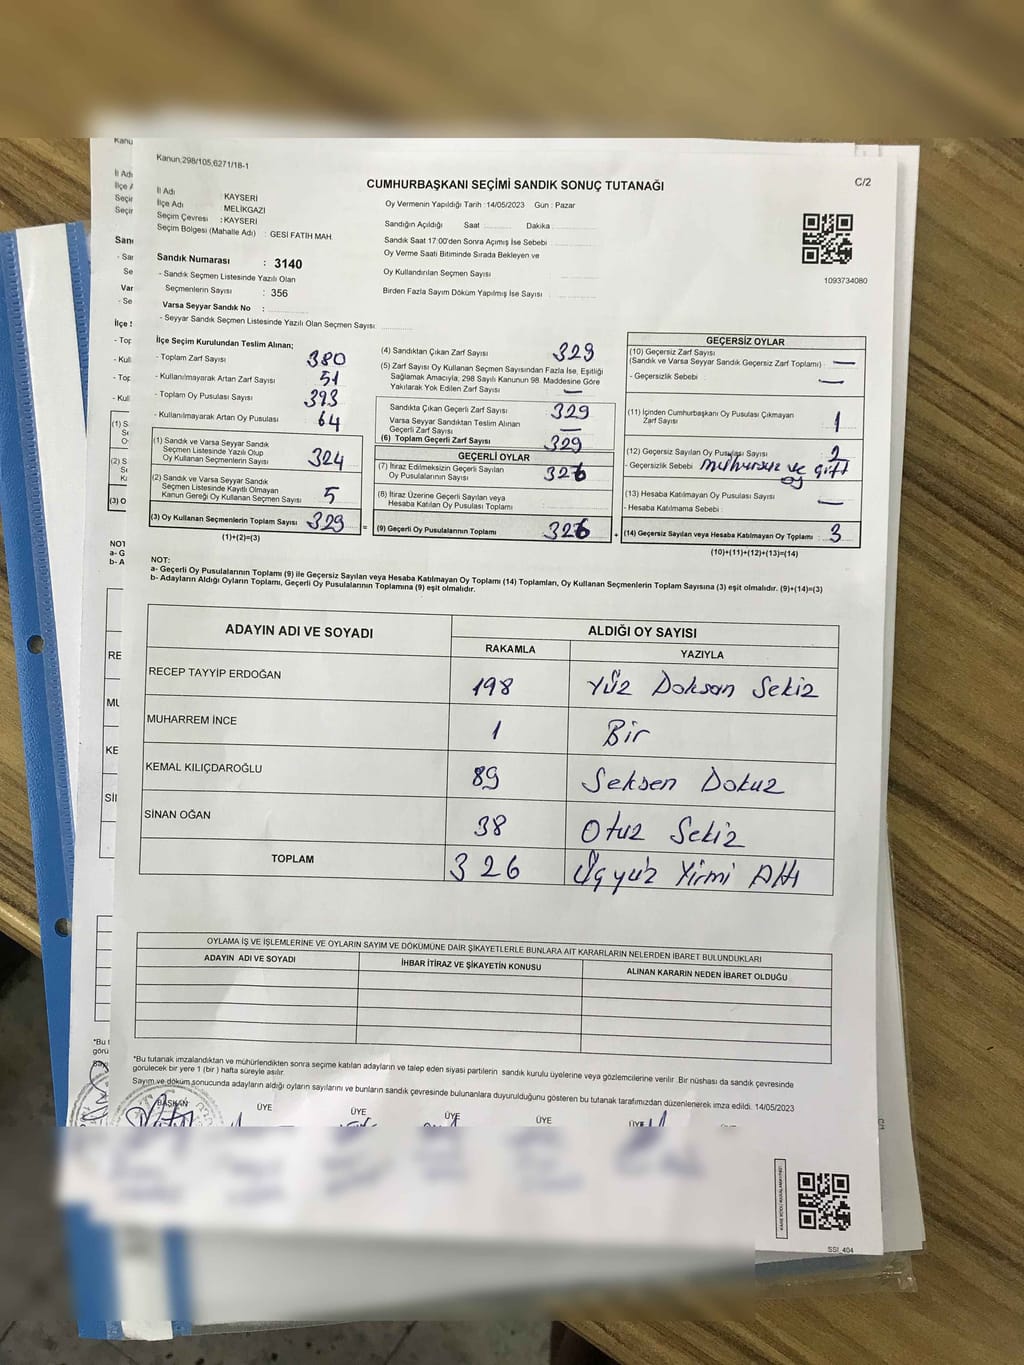 Kanun,298/105,6271/18-1
CUMHURBAŞKANI SEÇİMİ SANDIK SONUÇ TUTANAĞI
C/2
İl Adı : KAYSERİ
İlçe Adı : MELİKGAZİ
Seçim Çevresi : KAYSERİ
Seçim Bölgesi (Mahalle Adı) : GESİ FATİH MAH.
Sandık Numarası : 3140
- Sandık Seçmen Listesinde Yazılı Olan
Seçmenlerin Sayısı : 356
Varsa Seyyar Sandık No :
- Seyyar Sandık Seçmen Listesinde Yazılı Olan Seçmen Sayısı:
Oy Vermenin Yapıldığı Tarih : 14/05/2023 Gun : Pazar
Sandığın Açıldığı Saat Dakika
Sandık Saat 17:00'den Sonra Açımış İse Sebebi
Oy Verme Saati Bitiminde Sırada Bekleyen ve
Oy Kullandırılan Seçmen Sayısı
Birden Fazla Sayım Döküm Yapılmış İse Sayısı
1093734080
İlçe Seçim Kurulundan Teslim Alınan;
- Toplam Zarf Sayısı 380
- Kullanılmayarak Artan Zarf Sayısı 51
- Toplam Oy Pusulası Sayısı 393
- Kullanılmayarak Artan Oy Pusulası 64
(1) Sandık ve Varsa Seyyar Sandık
Seçmen Listesinde Yazılı Olup
Oy Kullanan Seçmenlerin Sayısı 324
(2) Sandık ve Varsa Seyyar Sandık
Seçmen Listesinde Kayıtlı Olmayan
Kanun Gereği Oy Kullanan Seçmen Sayısı 5
(3) Oy Kullanan Seçmenlerin Toplam Sayısı 329
(1)+(2)=(3)
(4) Sandıktan Çıkan Zarf Sayısı 329
(5) Zarf Sayısı Oy Kullanan Seçmen Sayısından Fazla İse, Eşitliği
Sağlamak Amacıyla, 298 Sayılı Kanunun 98. Maddesine Göre
Yakılarak Yok Edilen Zarf Sayısı —
Sandıkta Çıkan Geçerli Zarf Sayısı 329
Varsa Seyyar Sandıktan Teslim Alınan
Geçerli Zarf Sayısı —
(6) Toplam Geçerli Zarf Sayısı 329
GEÇERLİ OYLAR
(7) İtiraz Edilmeksizin Geçerli Sayılan
Oy Pusulalarının Sayısı 326
(8) İtiraz Üzerine Geçerli Sayılan veya
Hesaba Katılan Oy Pusulası Toplamı
= (9) Geçerli Oy Pusulalarının Toplamı 326
GEÇERSİZ OYLAR
(10) Geçersiz Zarf Sayısı
(Sandık ve Varsa Seyyar Sandık Geçersiz Zarf Toplamı) —
- Geçersizlik Sebebi : —
(11) İçinden Cumhurbaşkanı Oy Pusulası Çıkmayan
Zarf Sayısı 1
(12) Geçersiz Sayılan Oy Pusulası Sayısı 2
- Geçersizlik Sebebi mühürsüz ve çift
oy
(13) Hesaba Katılmayan Oy Pusulası Sayısı —
- Hesaba Katılmama Sebebi :
+ (14) Geçersiz Sayılan veya Hesaba Katılmayan Oy Toplamı : 3
(10)+(11)+(12)+(13)=(14)
NOT:
a- Geçerli Oy Pusulalarının Toplamı (9) ile Geçersiz Sayılan veya Hesaba Katılmayan Oy Toplamı (14) Toplamları, Oy Kullanan Seçmenlerin Toplam Sayısına (3) eşit olmalıdır. (9)+(14)=(3)
b- Adayların Aldığı Oyların Toplamı, Geçerli Oy Pusulalarının Toplamına (9) eşit olmalıdır.
ADAYIN ADI VE SOYADI ALDIĞI OY SAYISI
RAKAMLA YAZIYLA
RECEP TAYYİP ERDOĞAN 198 Yüz Doksan Sekiz
MUHARREM İNCE 1 Bir
KEMAL KILIÇDAROĞLU 89 Seksen Dokuz
SİNAN OĞAN 38 Otuz Sekiz
TOPLAM 326 Üçyüz Yirmi Altı
OYLAMA İŞ VE İŞLEMLERİNE VE OYLARIN SAYIM VE DÖKÜMÜNE DAİR ŞİKAYETLERLE BUNLARA AİT KARARLARIN NELERDEN İBARET BULUNDUKLARI
ADAYIN ADI VE SOYADI İHBAR İTİRAZ VE ŞİKAYETİN KONUSU ALINAN KARARIN NEDEN İBARET OLDUĞU
*Bu tutanak imzalandıktan ve mühürlendikten sonra seçime katılan adayların ve talep eden siyasi partilerin sandık kurulu üyelerine veya gözlemcilerine verilir. Bir nüshası da sandık çevresinde
görülecek bir yere 1 (bir ) hafta süreyle asılır.
Sayım ve döküm sonucunda adayların aldığı oyların sayılarını ve bunların sandık çevresinde bulunanlara duyurulduğunu gösteren bu tutanak tarafımızdan düzenlenerek imza edildi. 14/05/2023
BAŞKAN ÜYE ÜYE ÜYE ÜYE ÜYE
SSİ_404